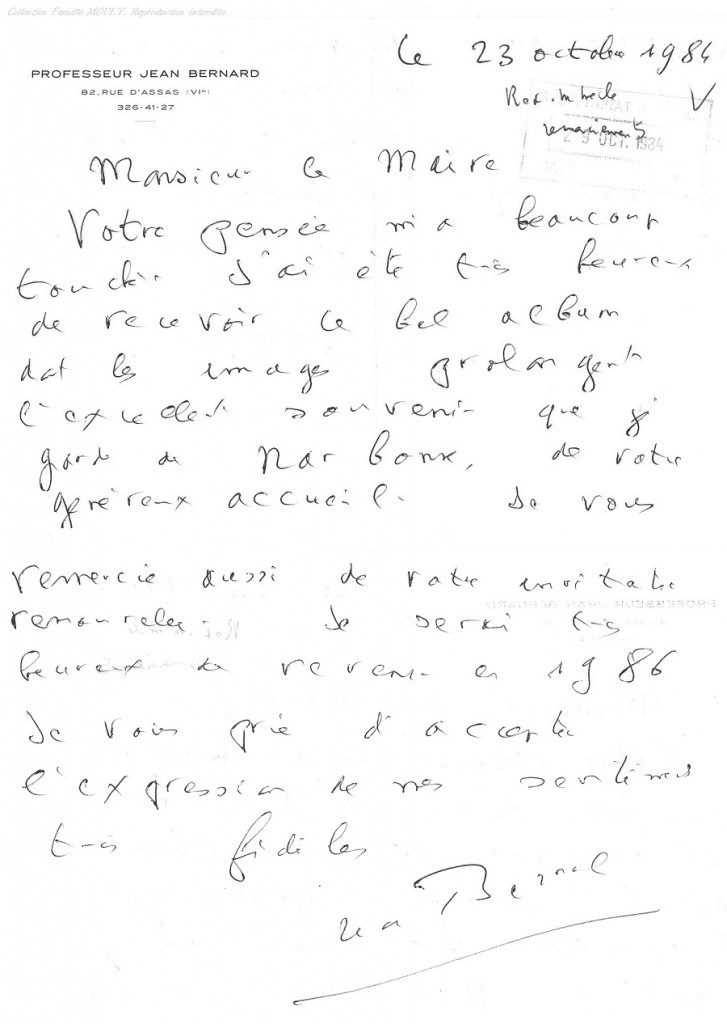 Collection Famille MOULY. Reproduction interdite.
PROFESSEUR JEAN BERNARD
82, RUE D'ASSAS (VIe)
326-41-27
le 23 octobre 1984
remerciements
29 OCT. 1984
Monsieur le Maire
Votre pensée m'a beaucoup
touché. J'ai été très heureux
de recevoir ce bel album
dont les images prolongent
l'excellent souvenir que je
garde de Narbonne, de votre
généreux accueil. Je vous
remercie aussi de votre invitation
renouvelée. Je serai très
heureux de revenir en 1986
Je vous prie d'accepter
l'expression de mes sentiments
très fidèles
Jean Bernard